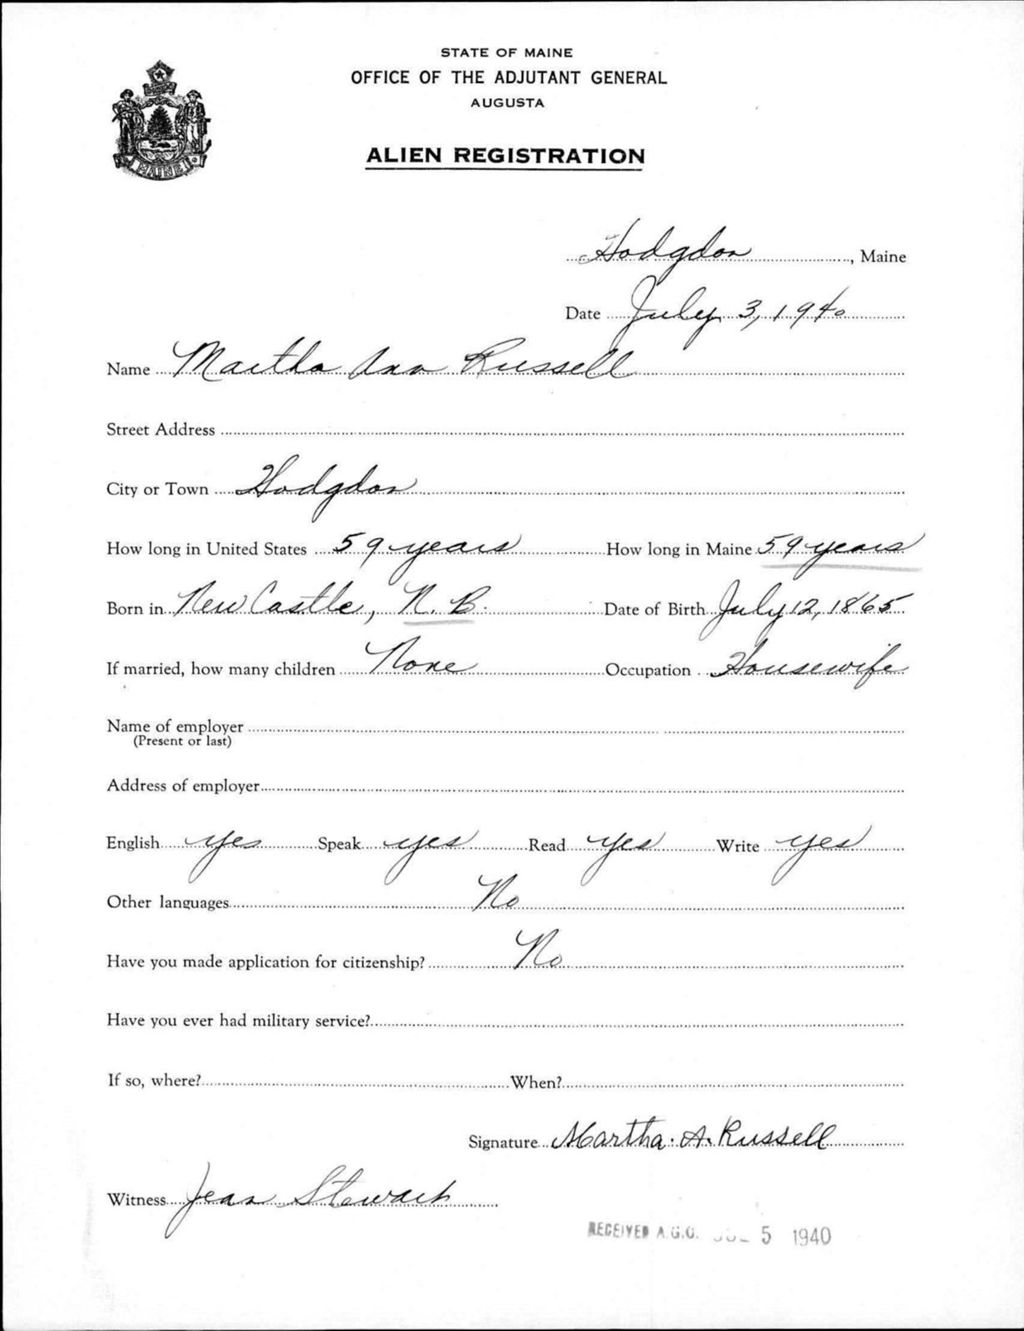 STATE OF MAINE
OFFICE OF THE ADJUTANT GENERAL
AUGUSTA
ALIEN REGISTRATION
MAINE
Hodgdon, Maine
Date July 3, 1940
Name Martha Ann Russell
Street Address
City or Town Hodgdon
How long in United States 59 years How long in Maine 59 years
Born in New Castle, N. B. Date of Birth July 12, 1865
If married, how many children None Occupation Housewife
Name of employer
(Present or last)
Address of employer
English yes Speak yes Read yes Write yes
Other languages No
Have you made application for citizenship? No
Have you ever had military service?
If so, where? When?
Signature Martha A. Russell
Witness Jean Stewart
RECEIVED A.G.O. JUL 5 1940